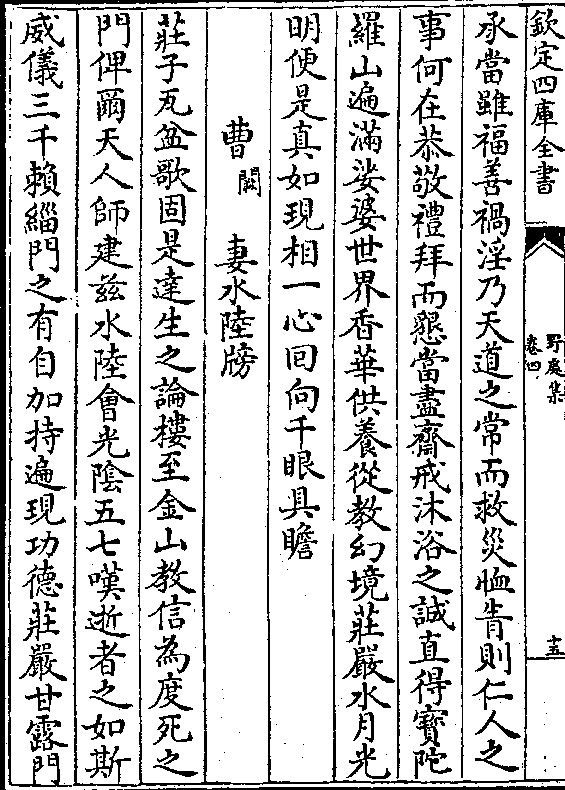 欽定四庫全書
野處集
卷四
十五
承當雖福善禍淫乃天道之常而救災恤眚則仁人之
事何在恭敬禮拜而懇當盡齋戒沐浴之誠直得寶陀
羅山遍滿娑婆世界香華供養從教幻境莊嚴水月光
明便是真如現相一心回向千眼具瞻
曹闕妻水陸牓
莊子瓦盆歌固是達生之論樓至金山教信為度死之
門俾爾天人師建兹水陸會光陰五七嘆逝者之如斯
威儀三千賴緇門之有自加持遍現功德莊嚴甘露門